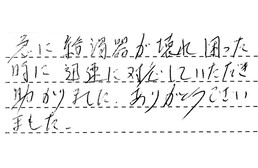 急に給湯器が壊れ困った
時に迅速に対応していただき
助かりました。ありがとうござい
ました。